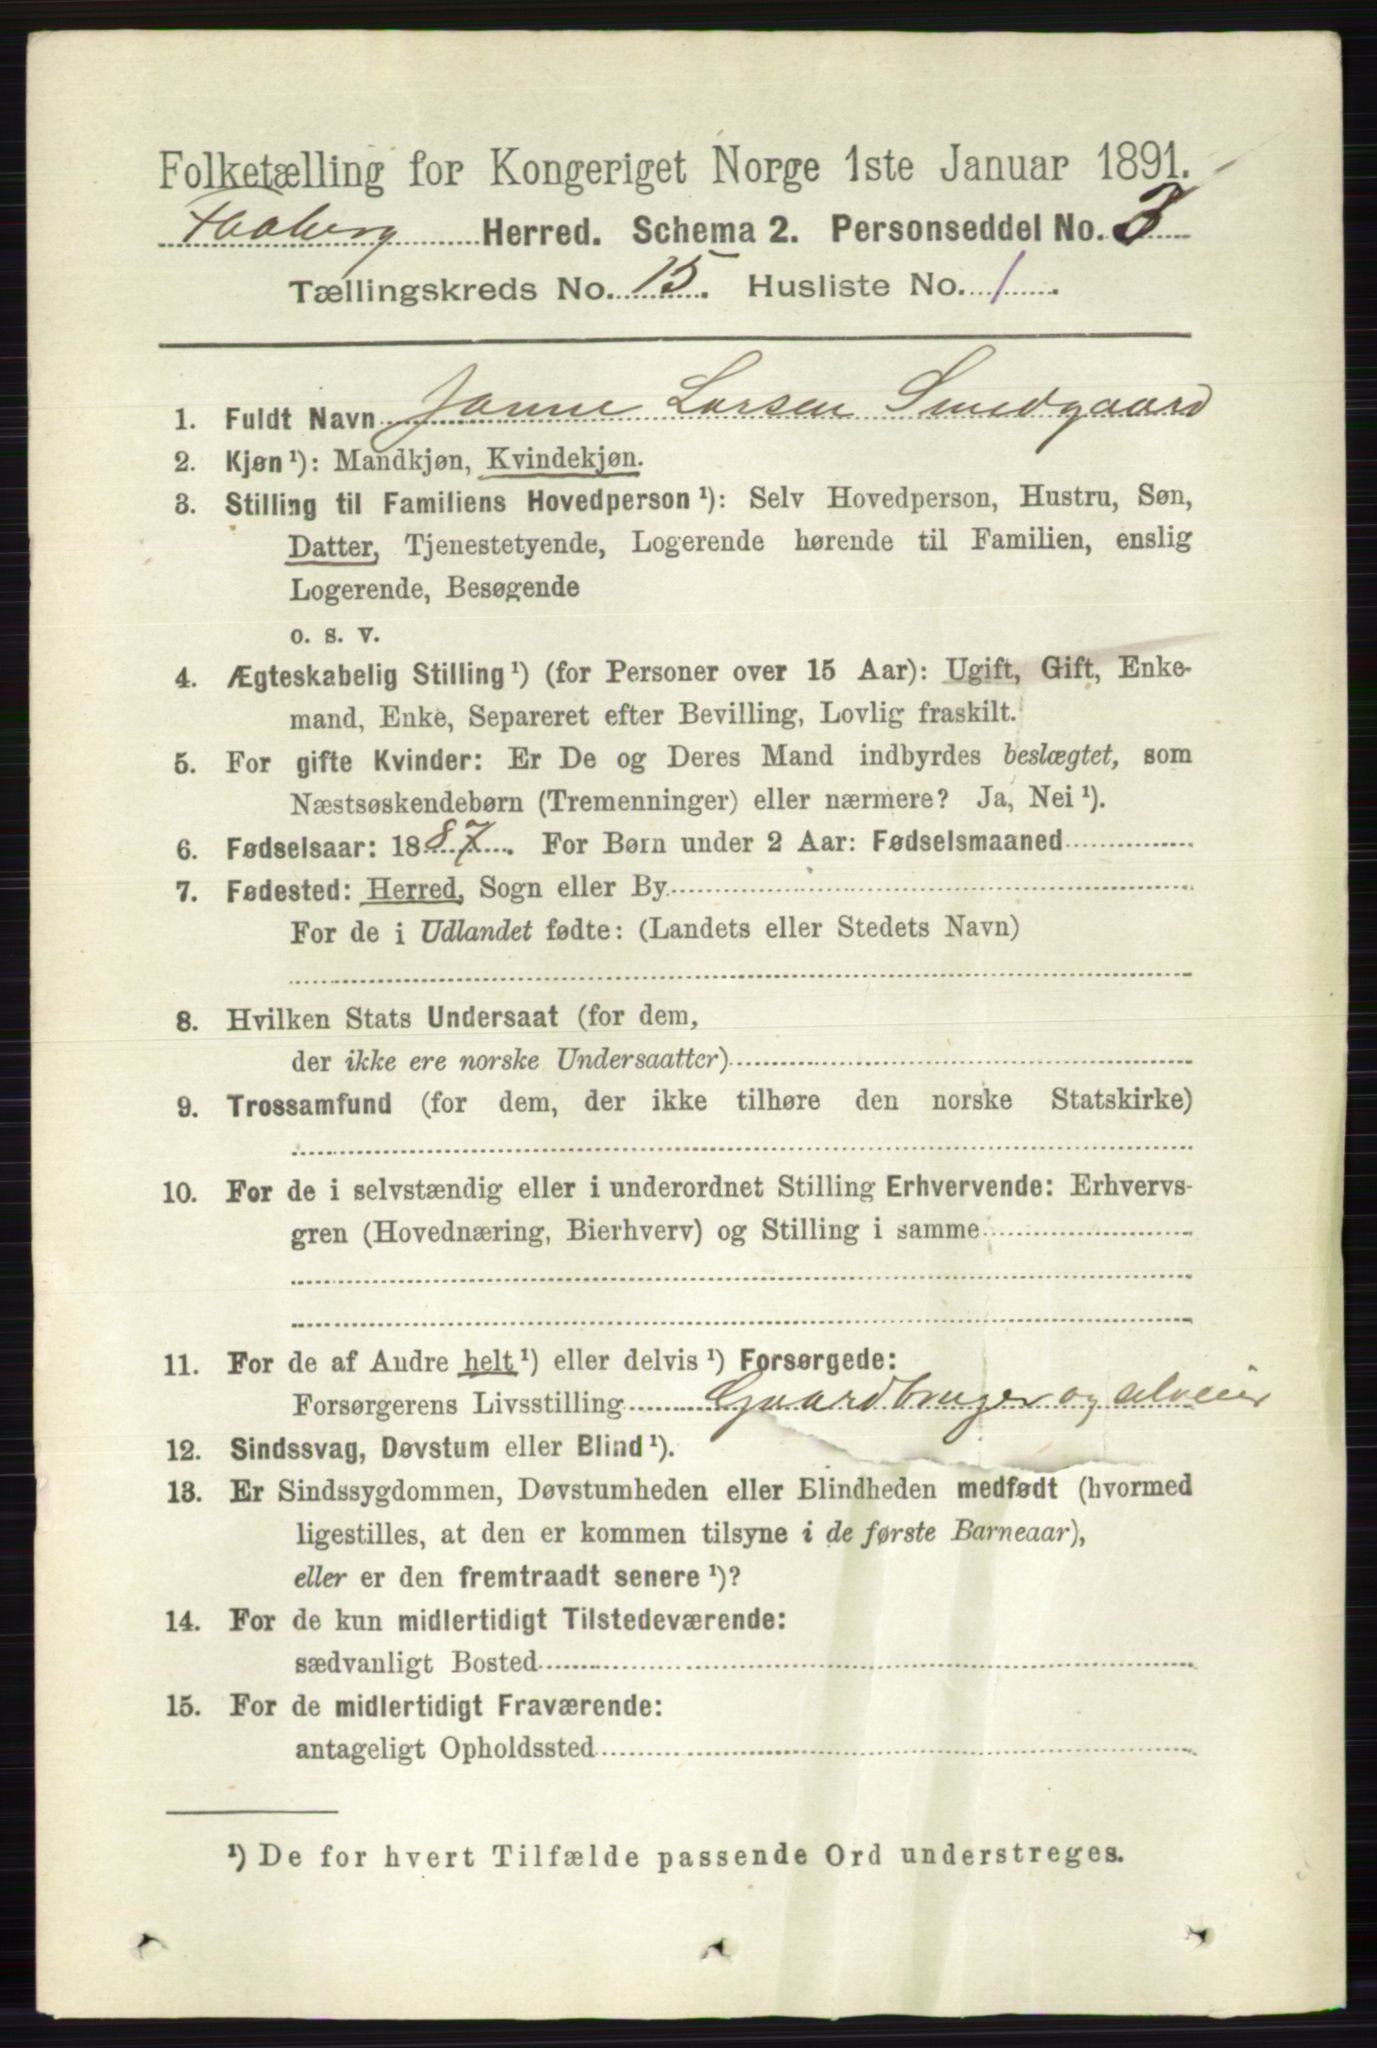 Folketælling for Kongeriget Norge 1ste Januar 1891.
Faaberg Herred. Schema 2. Personseddel No. 3
Tællingskreds No. 15. Husliste No. 1.
1. Fuldt Navn Janne Larsen Smedgaard
2. Kjøn ¹): Mandkjøn, Kvindekjøn.
3. Stilling til Familiens Hovedperson ¹): Selv Hovedperson, Hustru, Søn,
Datter, Tjenestetyende, Logerende hørende til Familien, enslig
Logerende, Besøgende
o. s. v.
4. Ægteskabelig Stilling ¹) (for Personer over 15 Aar): Ugift, Gift, Enke-
mand, Enke, Separeret efter Bevilling, Lovlig fraskilt.
5. For gifte Kvinder: Er De og Deres Mand indbyrdes beslægtet, som
Næstsøskendebørn (Tremenninger) eller nærmere? Ja, Nei ¹).
6. Fødselsaar: 1887. For Børn under 2 Aar: Fødselsmaaned
7. Fødested: Herred, Sogn eller By
For de i Udlandet fødte: (Landets eller Stedets Navn)
8. Hvilken Stats Undersaat (for dem,
der ikke ere norske Undersaatter)
9. Trossamfund (for dem, der ikke tilhøre den norske Statskirke)
10. For de i selvstændig eller i underordnet Stilling Erhvervende: Erhvervs-
gren (Hovednæring, Bierhverv) og Stilling i samme
11. For de af Andre helt ¹) eller delvis ¹) Forsørgede:
Forsørgerens Livsstilling Gaardbruger og selveier
12. Sindssvag, Døvstum eller Blind ¹).
13. Er Sindssygdommen, Døvstumheden eller Blindheden medfødt (hvormed
ligestilles, at den er kommen tilsyne i de første Barneaar),
eller er den fremtraadt senere ¹)?
14. For de kun midlertidigt Tilstedeværende:
sædvanligt Bosted
15. For de midlertidigt Fraværende:
antageligt Opholdssted
¹) De for hvert Tilfælde passende Ord understreges.